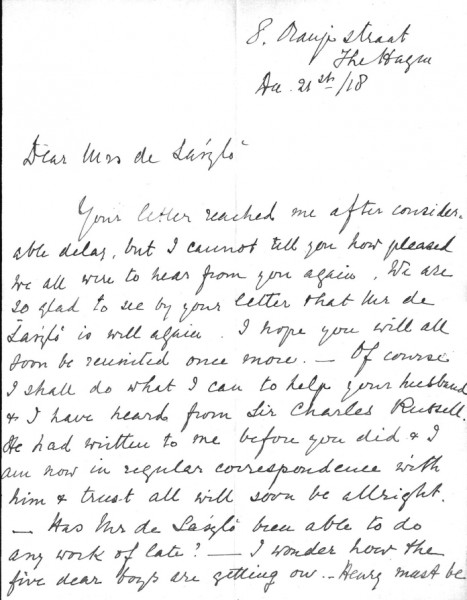 8. Oranje straat
The Hague
21st/18
Dear Mrs de László
Your letter reached me after consider-
able delay, but I cannot tell you how pleased
we all were to hear from you again. We are
so glad to see by your letter that Mr de
László is well again. I hope you will all
soon be reunited once more. — Of course
I shall do what I can to help your husband
& I have heard from Sir Charles Russell.
He had written to me before you did & I
am now in regular correspondence with
him & trust all will soon be allright.
— Has Mr de László been able to do
any work of late? — I wonder how the
five dear boys are getting on. — Henry must be